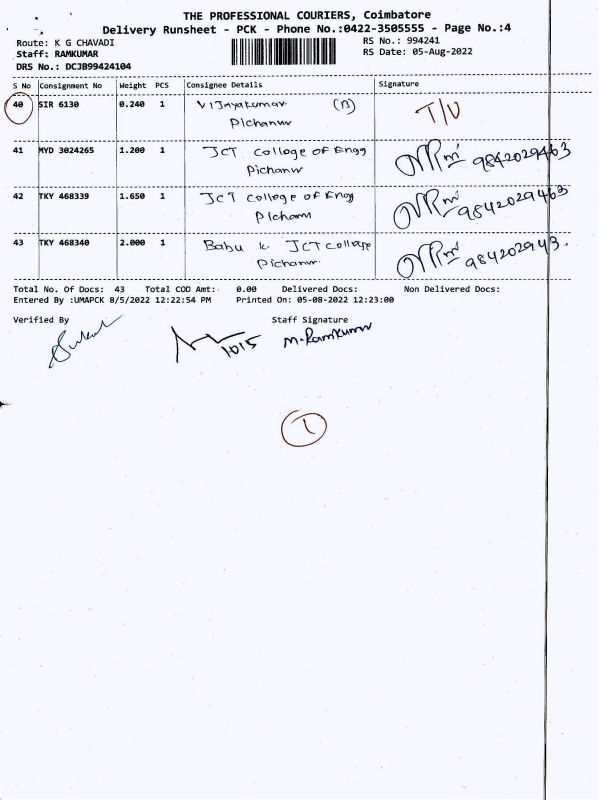 THE PROFESSIONAL COURIERS, Coimbatore
Delivery Runsheet - PCK - Phone No.:0422-3505555 - Page No.:4
Route: K G CHAVADI RS No.: 994241
Staff: RAMKUMAR RS Date: 05-Aug-2022
DRS No.: DCJB99424104
S No Consignment No Weight PCS Consignee Details Signature
40 SIR 6130 0.240 1 Vijayakumar (B) T/U
Pichanur
41 MYD 3024265 1.200 1 JCT College of Engg 9842029463
Pichanur
42 TKY 468339 1.650 1 JCT College of Engg 9842029463
Pichanur
43 TKY 468340 2.000 1 Babu k. JCT College 984202943.
Pichanur.
Total No. Of Docs: 43 Total COD Amt: 0.00 Delivered Docs: Non Delivered Docs:
Entered By :UMAPCK 8/5/2022 12:22:54 PM Printed On: 05-08-2022 12:23:00
Verified By Staff Signature
1015 M.Ramkumar
1